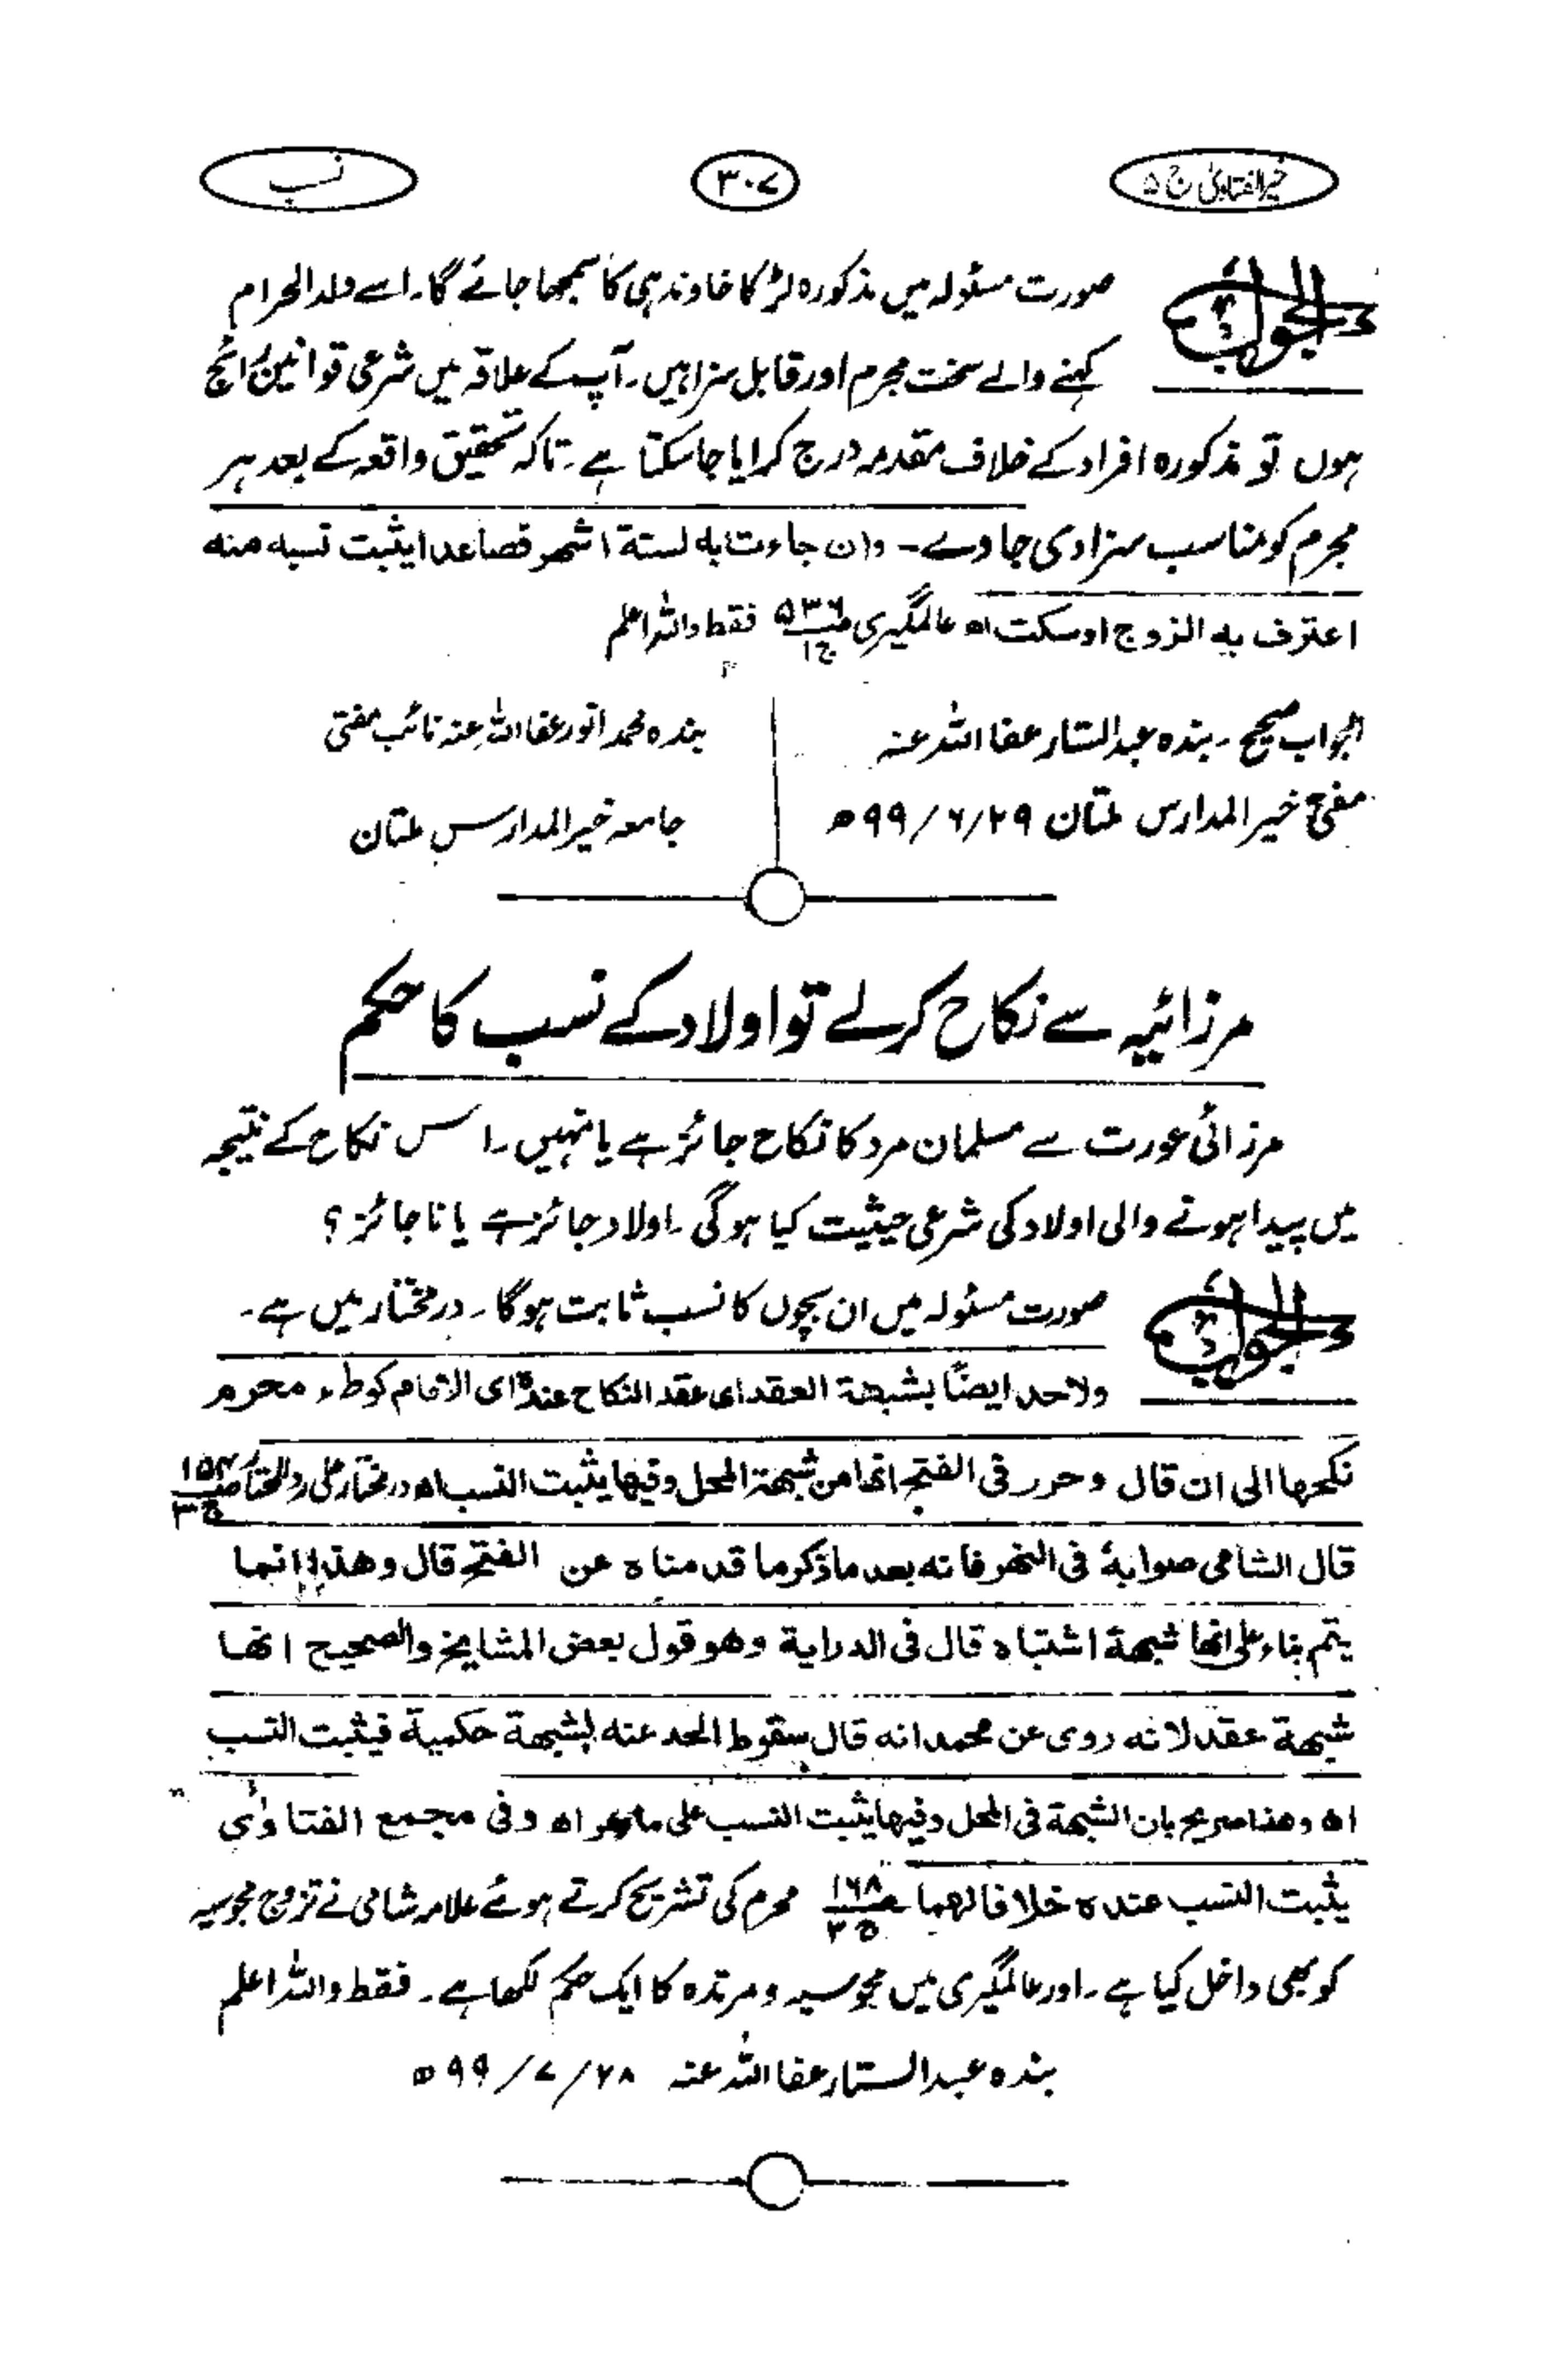 خیر الفتاویٰ ج ۵
۳۰۷
نسب
الجواب
صورت مسئولہ میں مذکورہ لڑکا خاوند ہی کا سمجھا جائے گا۔ اسے ولد الحرام
کہنے والے سخت مجرم اور قابل سزا ہیں۔ آپ کے علاقہ میں شرعی قوانین رائج
ہوں تو مذکورہ افراد کے خلاف مقدمہ درج کرایا جا سکتا ہے۔ تاکہ تحقیق واقعہ کے بعد ہر
مجرم کو مناسب سزا دی جاوے۔ وان جاءت به لستة اشهر فصاعدا یثبت نسبه منه
اعترف به الزوج او سکت اھ عالمگیری ص ۵۳۶ ج ۱ فقط واللہ اعلم
الجواب صحیح۔ بندہ عبدالستار عفا اللہ عنہ
مفتی خیر المدارس ملتان ۲۹/۶/۹۹ھ
بندہ محمد انور عفا اللہ عنہ نائب مفتی
جامعہ خیر المدارس ملتان
مرزائیہ سے نکاح کر لے تو اولاد کے نسب کا حکم
مرزائی عورت سے مسلمان مرد کا نکاح جائز ہے یا نہیں۔ اس نکاح کے نتیجہ
میں پیدا ہونے والی اولاد کی شرعی حیثیت کیا ہوگی۔ اولاد جائز ہے یا ناجائز؟
الجواب
صورت مسئولہ میں ان بچوں کا نسب ثابت ہوگا۔ درمختار میں ہے۔
ولاحد ایضًا بشبهة العقد ای عقد النکاح عندہ ای الامام کوطء محرم
نکحها الی ان قال وحرر فی الفتح انها من شبهة المحل وفیها یثبت النسب اھ درمختار علی رد المحتار ص ۱۵۴ ج ۳
قال الشامی صوابهٗ فی النهر فانه بعد ما ذکر ما قدمناہ عن الفتح قال وهذا انما
یتم بناء علی انها شبهة اشتباہ قال فی الدرایة وهو قول بعض المشایخ والصحیح انها
شبهة عقد لانه روی عن محمد انه قال سقوط الحد عنه لشبهة حکمیة فیثبت النسب
اھ وهذا صریح بان الشبهة فی المحل وفیها یثبت النسب علی ما مر اھ وفی مجمع الفتاویٰ
یثبت النسب عندہ خلافا لهما ص ۱۶۸ ج ۳ محرم کی تشریح کرتے ہوئے علامہ شامی نے تزوج مجوسیہ
کو بھی داخل کیا ہے۔ اور عالمگیری میں مجوسیہ و مرتدہ کا ایک حکم لکھا ہے۔ فقط واللہ اعلم
بندہ عبدالستار عفا اللہ عنہ ۲۸/۷/۹۹ھ